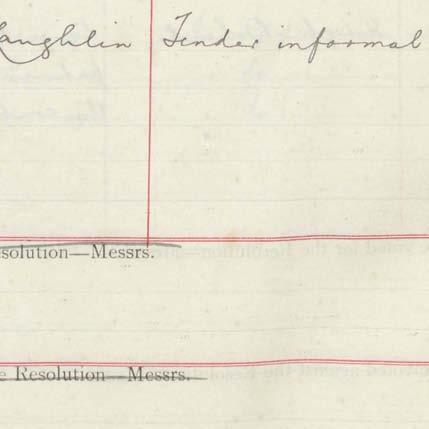 aughlin Tender informal
esolution—Messrs.
e Resolution—Messrs.